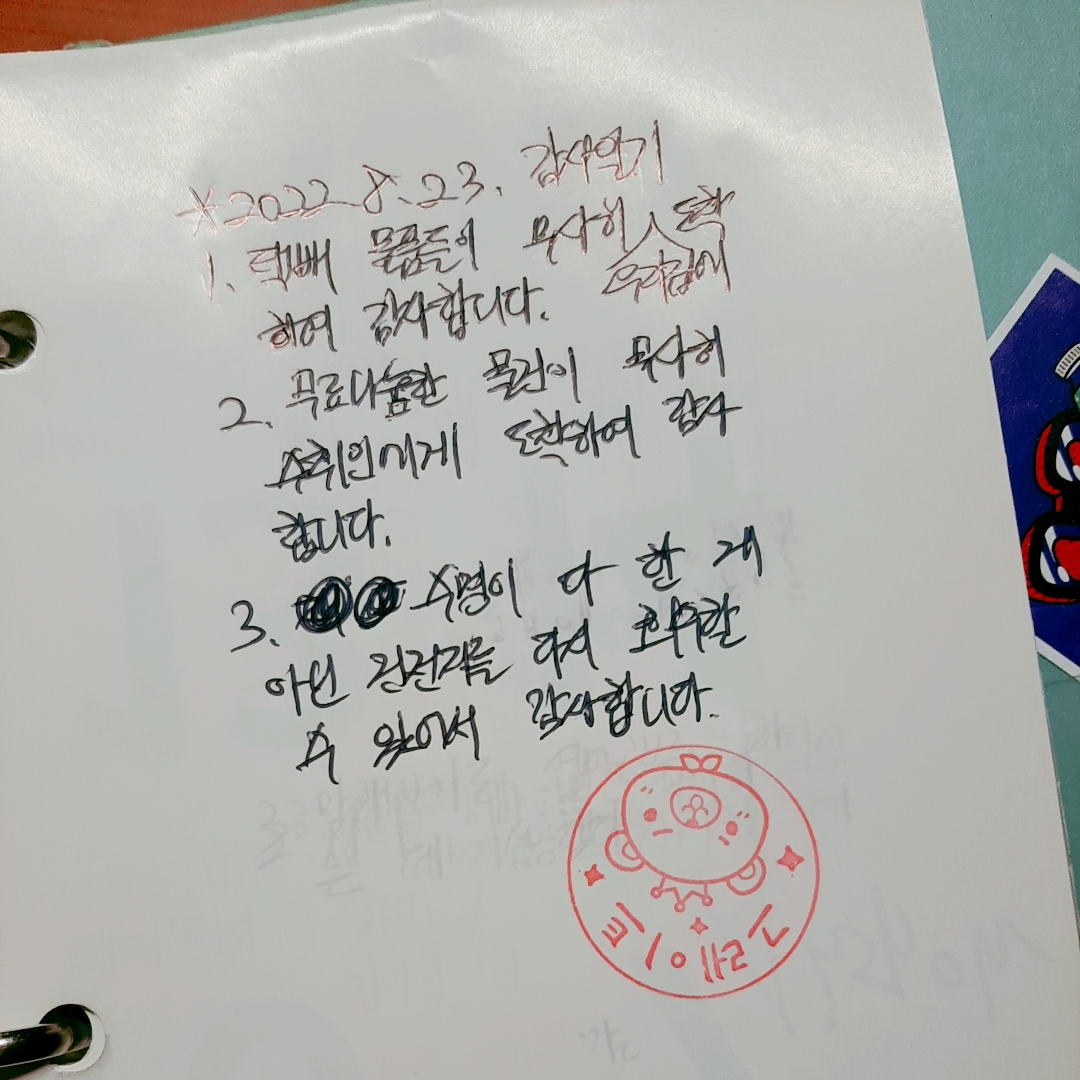 *2022. 8. 23. 감사일기
1. 택배 물품들이 무사히 우리집에 도착
하여 감사합니다.
2. 무료나눔한 물건이 무사히
수취인에게 도착하여 감사
합니다.
3. 수명이 다 한 게
아닌 건전지를 다시 회수할
수 있어서 감사합니다.